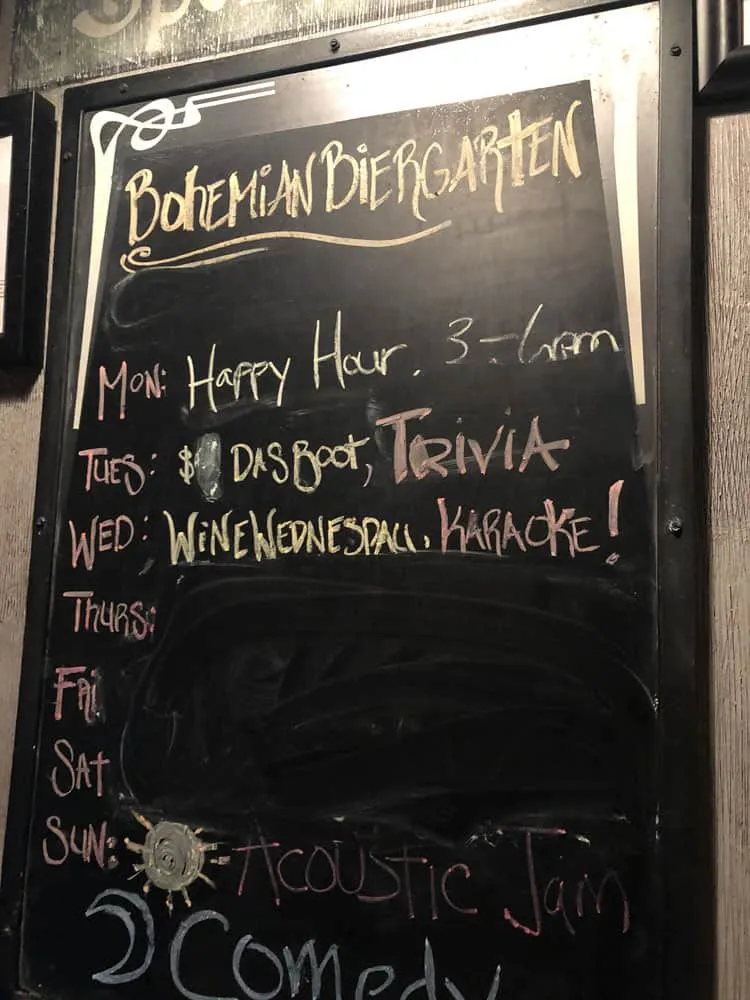 BOHEMIAN BIERGARTEN
MON: Happy Hour. 3-6pm
TUES: $ DAS BOOT, TRIVIA
WED: WINE WEDNESDAY, KARAOKE!
THURS:
FRI
SAT
SUN: Acoustic Jam
Comedy